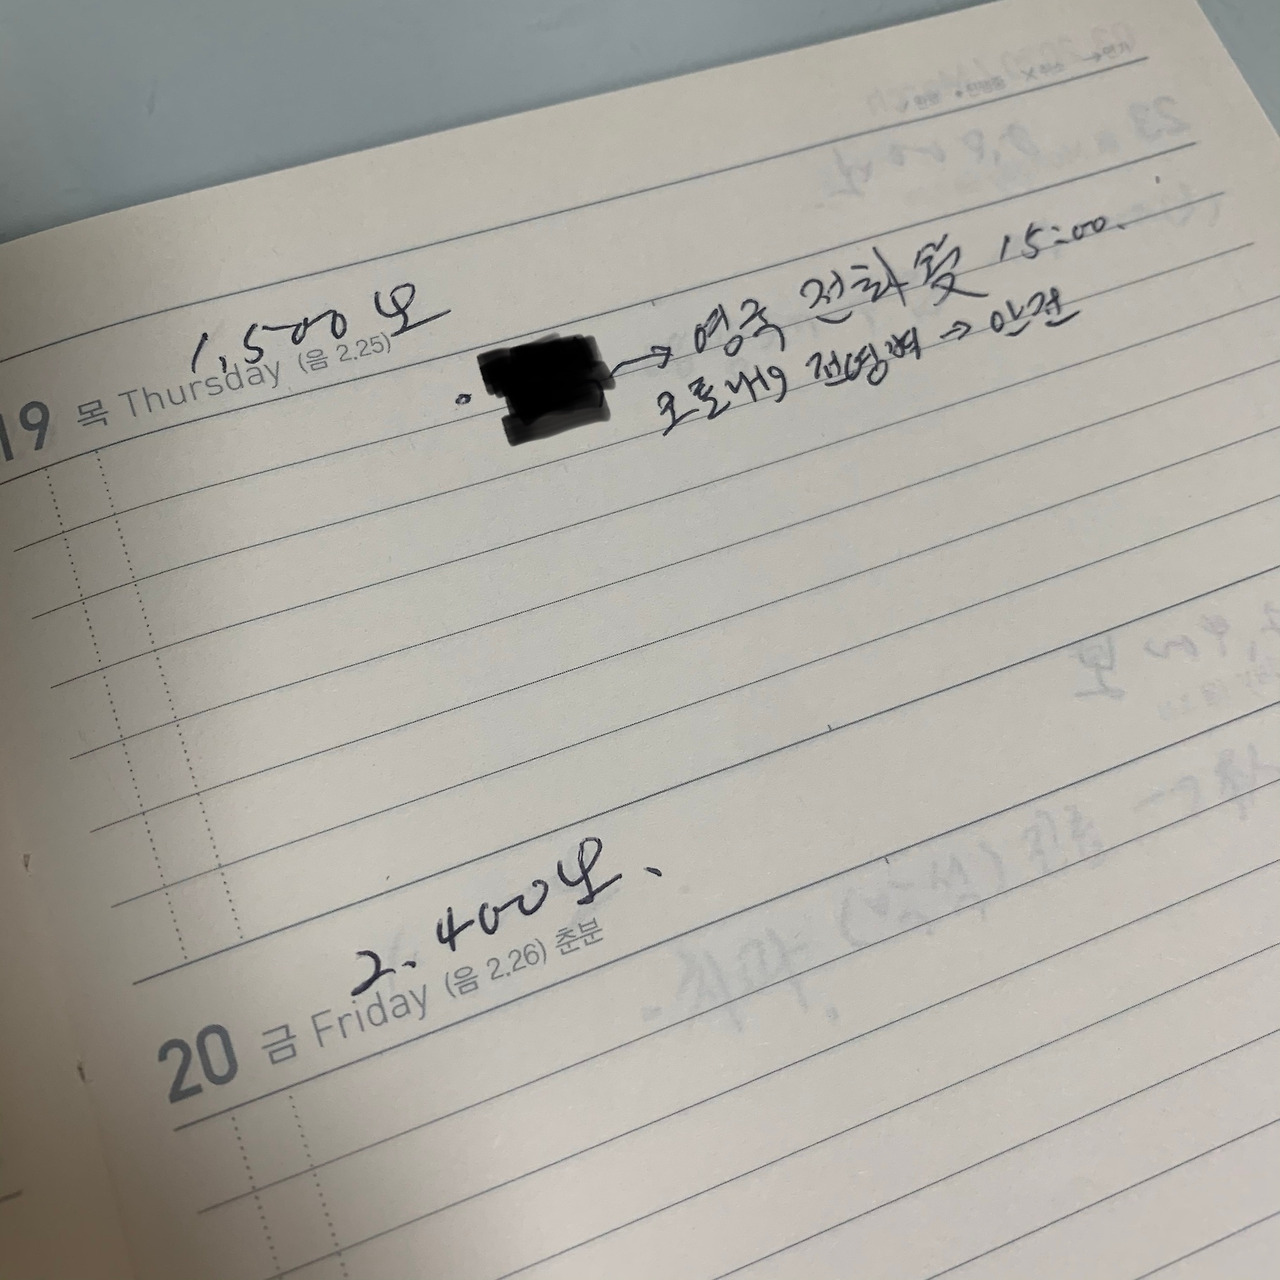 1,500보
19 목 Thursday (음 2.25)
• → 영국 전화 受 15:00.
코로나19 전염병 → 안전
2.400보.
20 금 Friday (음 2.26) 춘분